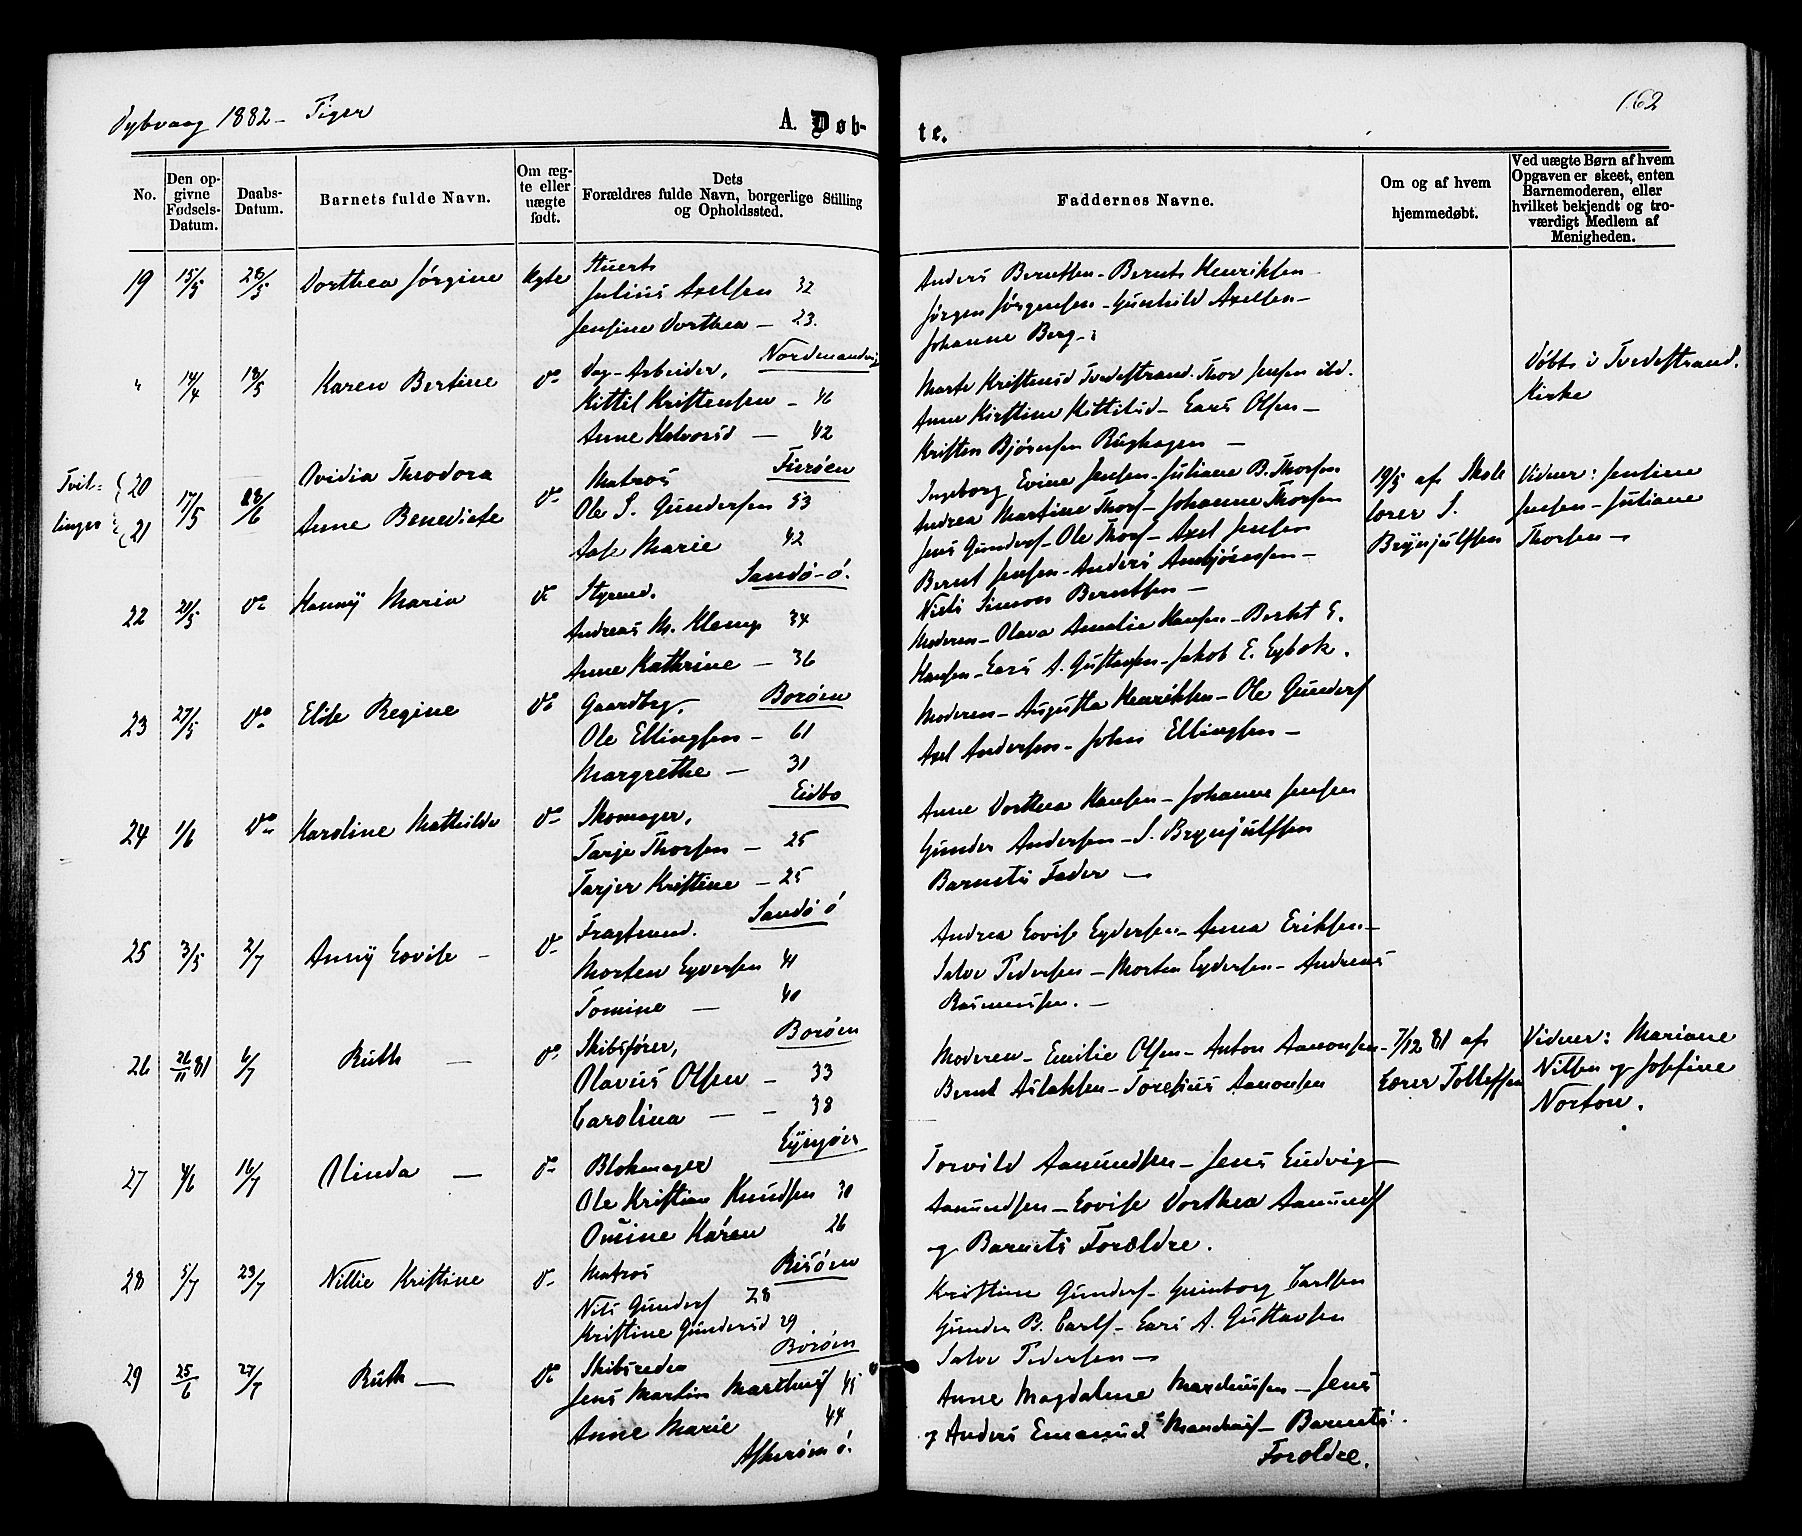 Dybvaag 1882 - Piger
A. Døb-
te.
162
No.
Den op-
givne
Fødsels-
Datum.
Daabs-
Datum.
Barnets fulde Navn.
Om æg-
te eller
uægte
født.
Dets
Forældres fulde Navn, borgerlige Stilling
og Opholdssted.
Faddernes Navne.
Om og af hvem
hjemmedøbt.
Ved uægte Børn af hvem
Opgaven er skeet, enten
Barnemoderen, eller
hvilket bekjendt og tro-
værdigt Medlem af
Menigheden.
19 15/5 28/5 Dorthea Jørgine Ægte Stuerts
Julius Axelsen 32
Jensine Dorthea - 23.
Nordmandvig
Anders Berntsen - Bernts Henriksen -
Jørgen Jørgensen - Gunhild Axelsen -
Johanne Berg -
" 14/4 18/5 Karen Bertine do Dag-Arbeider,
Kittil Kristensen - 46
Anne Halvorsd - 42
Furøen
Marte Kristensd Tvedestrand. Thor Jensen ibd.
Anne Kirstine Kittilsd - Lars Olsen -
Kristen Bjørnsen Rughagen -
Døbt i Tvedestrand.
Kirke
Tvil-
linger
20 Ovidia Theodora
21 17/5 18/6 Anne Benedicte do
Matros
Ole S. Gundersen 53
Aase Marie 42
Sandø-ø.
Ingeborg Evine Jensen - Juliane B. Thorsen
Andrea Martine Thors - Johanne Thorsen
Jens Gunders - Ole Thors - Axel Jensen
Bernt Jensen - Anders Ambjørnsen -
Niels Simon Berntsen -
19/5 af Skole
lærer S.
Brynjulfsen
Vidner: Jensine
Jensen - Juliane
Thorsen -
22 20/5 do Hanny Maria do Styrmd.
Andreas M. Klemp 34
Anne Kathrine - 36
Borøen
Moderen - Olava Amalie Hansen - Berthet E.
Hansen - Lars A. Gustavsen - Jakob E. Egbok.
23 27/5 do Elise Regine do Gaardbrg.
Ole Ellingsen - 61
Margrethe - 31
Eidbo
Moderen - Augusta Henriksen - Ole Gunders
Axel Andersen - John Ellingsen -
24 1/6 do Karoline Mathilde do Skomager,
Tarje Thorsen - 25
Tarjer Kristine - 25
Sandø ø
Anne Dorthea Hansen - Johanne Jensen
Gunder Andersen - S. Brynjulfsen
Barnets Fader -
25 3/5 2/7 Anny Lovise - do Fragtmand.
Morten Eyversen 41
Tomine - 40
Borøen
Andrea Lovise Eydersen - Anna Eriksen -
Salve Pedersen - Morten Eydersen - Andreas
Rasmussen. -
26 26/11 81 6/7 Ruth - do Skibsfører,
Olavus Olsen - 33
Carolina - - 38
Moderen - Emilie Olsen - Anton Aanonsen -
Bernt Aslaksen - Toresius Aanonsen
7/12 81 af
Lærer Tollefsen
Vidner: Mariane
Nilsen og Josefine
Norton.
27 4/6 16/7 Olinda - do Blokmager
Ole Kristian Knudsen 30
Omine Karen 26
Risøen
Torvild Aanundsen - Jens Ludvig -
Aanundsen - Lovise Dorthea Aanunds
og Barnets Forældre.
28 5/7 23/7 Nillie Kristine do Matros
Nils Gunders 28
Kristine Gundersd 29
Borøen
Kristine Gunders - Gunborg Carlsen
Gunder B. Carls - Lars A. Gustavsen
Salve Pedersen -
29 25/6 27/7 Ruth - do Skibsreder
Jens Martin Marthins 45
Anne Marie 44
Askerøen ø.
Anne Magdalene Marthinsen - Jens
og Anders Emanuel Marthins - Barnets
Forældre.